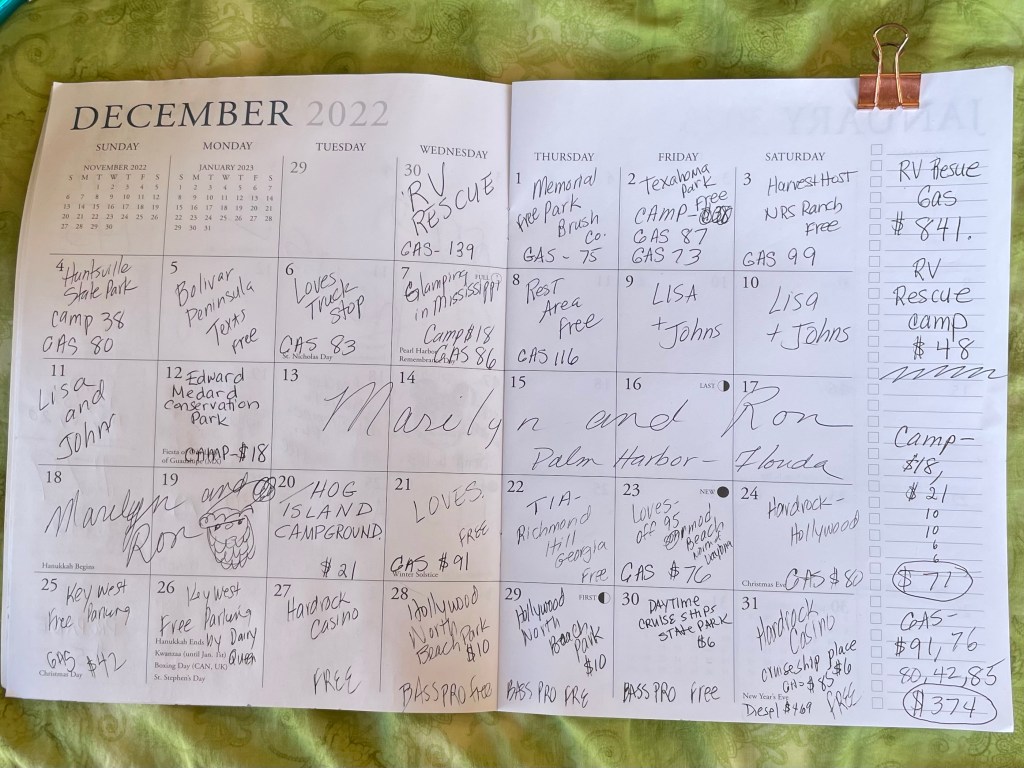 DECEMBER 2022
SUNDAY MONDAY TUESDAY WEDNESDAY THURSDAY FRIDAY SATURDAY
NOVEMBER 2022
S M T W T F S
1 2 3 4 5
6 7 8 9 10 11 12
13 14 15 16 17 18 19
20 21 22 23 24 25 26
27 28 29 30
JANUARY 2023
S M T W T F S
1 2 3 4 5 6 7
8 9 10 11 12 13 14
15 16 17 18 19 20 21
22 23 24 25 26 27 28
29 30 31
29
30
RV
RESCUE
GAS- 139
1
Memorial
Free Park
Brush
Co.
GAS - 75
2
Texahoma
Park
Free
CAMP-
GAS 87
GAS 73
3
Harvest Host
NRS Ranch
Free
GAS 99
4
Huntsville
State Park
Camp 38
GAS 80
5
Bolivar
Peninsula
Texas
Free
6
Loves
Truck
Stop
GAS 83
St. Nicholas Day
7
FULL
Glamping
in Mississippi
Camp \$18
Pearl Harbor
Remembrance
GAS 86
8
Rest
Area
Free
GAS 116
9
LISA
+ Johns
10
Lisa
+ Johns
11
Lisa
and
John
12
Edward
Medard
Conservation
Park
CAMP-\$18
13
14
15
16
LAST
17
Marilyn and Ron
Palm Harbor - Florida
18
19
Marilyn and
Ron
Hanukkah Begins
20
HOG
ISLAND
CAMPGROUND.
\$21
21
LOVES.
FREE
GAS \$91
Winter Solstice
22
TIA-
Richmond
Hill
Georgia
Free
23
NEW
Loves-
off 95
Ormod
Beach
GAS \$76
24
Hardrock-
Hollywood
Christmas Eve
GAS \$80
25
Key West
Free Parking
GAS \$42
Christmas Day
26
Key West
Free Parking
Hanukkah Ends
by Dairy
Kwanzaa (until Jan. 1st)
Queen
Boxing Day (CAN, UK)
St. Stephen's Day
27
Hardrock
Casino
FREE
28
Hollywood
North
Beach Park
\$10
BASS PRO Free
29
FIRST
Hollywood
North
Beach
Park
\$10
BASS PRO FRE
30
DAYTIME
CRUISE SHIPS
STATE PARK
\$6
BASS PRO Free
31
Hardrock
Casino
cruiseship place
\$6
GAS = \$85
New Year's Eve
FREE
Diesel \$4.69
RV Resue
Gas
\$841.
RV
Rescue
camp
\$48
Camp-
\$18,
\$21
10
10
6
6
\$71
GAS-
\$91, 76
80, 42, 85
\$374